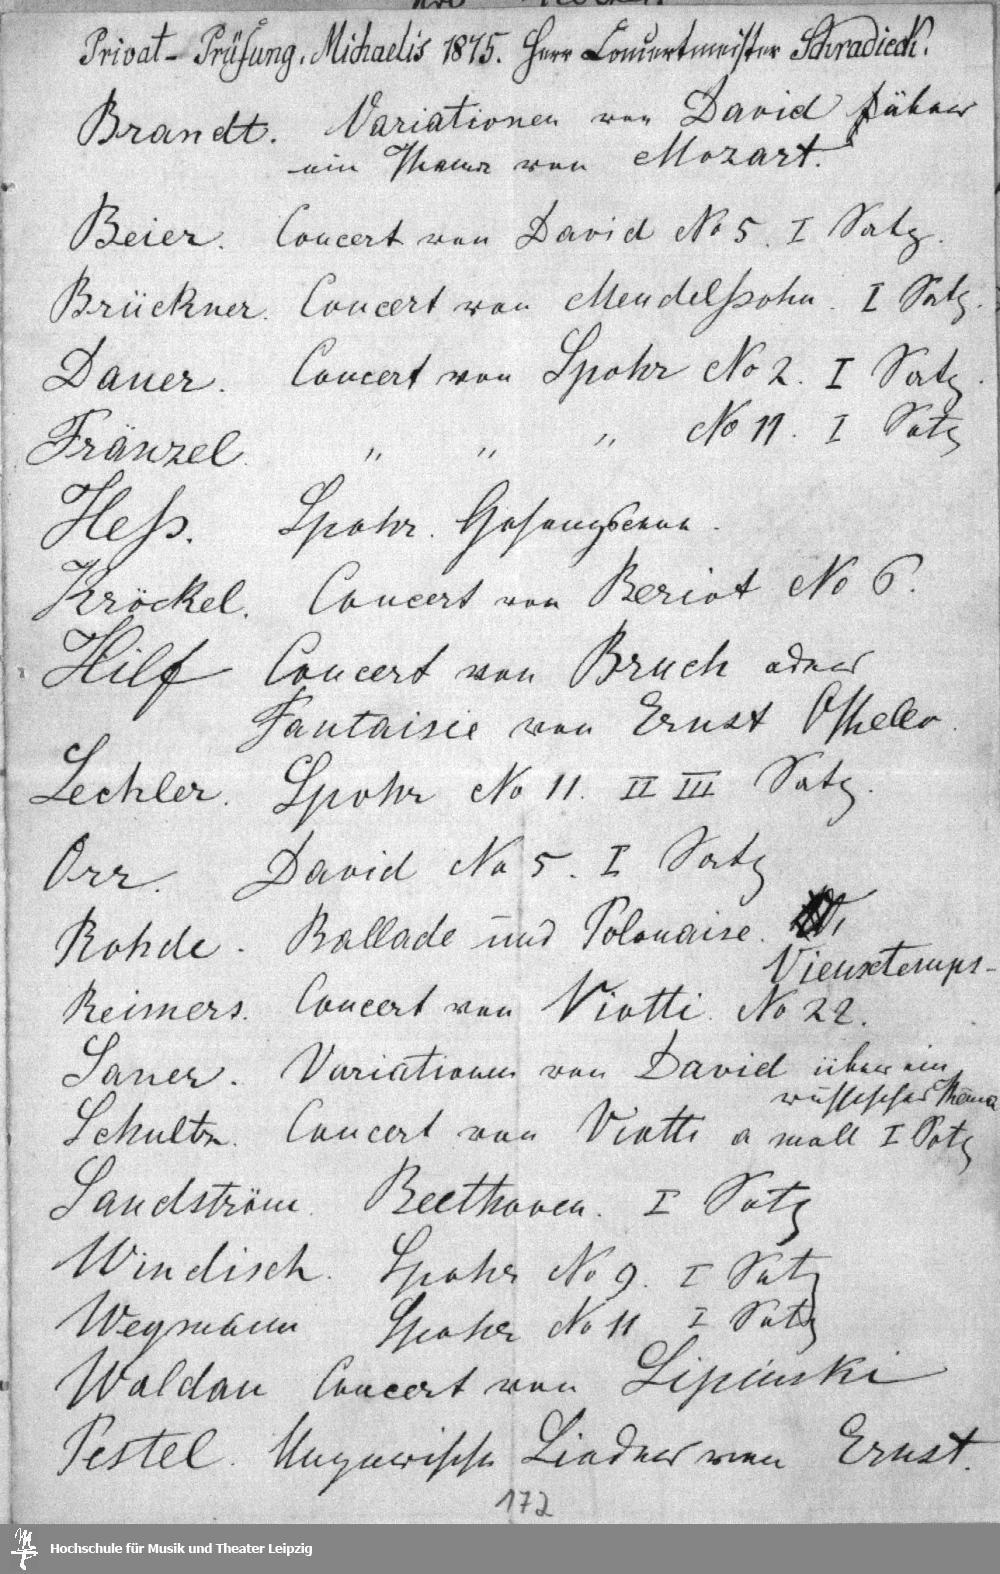 Privat-Prüfung. Michaelis 1875. Herr Concertmeister Schradieck.
Brandt. Variationen von David über
ein Thema von Mozart.
Beier. Concert von David No 5. I Satz.
Brückner. Concert von Mendelssohn. I Satz.
Dauer. Concert von Spohr No 2. I Satz.
Fränzel. " " " No 11. I Satz
Heß. Spohr. Gesangscene.
Kröckel. Concert von Beriot No 6.
Hilf Concert von Bruch oder
Fantaisie von Ernst Othello.
Lechler. Spohr No 11. II III Satz.
Orr. David No 5. I Satz
Rohde. Ballade und Polonaise.
Vieuxtemps-
Reimers. Concert von Viotti. No 22.
Sauer. Variationen von David über ein
russisches Thema
Schultz. Concert von Viotti a moll I Satz
Sandström. Beethoven. I Satz
Windisch. Spohr No 9. I Satz
Wegmann Spohr No 11 I Satz
Waldau Concert von Lipinski
Pestel. Ungarische Lieder von Ernst.
172
Hochschule für Musik und Theater Leipzig